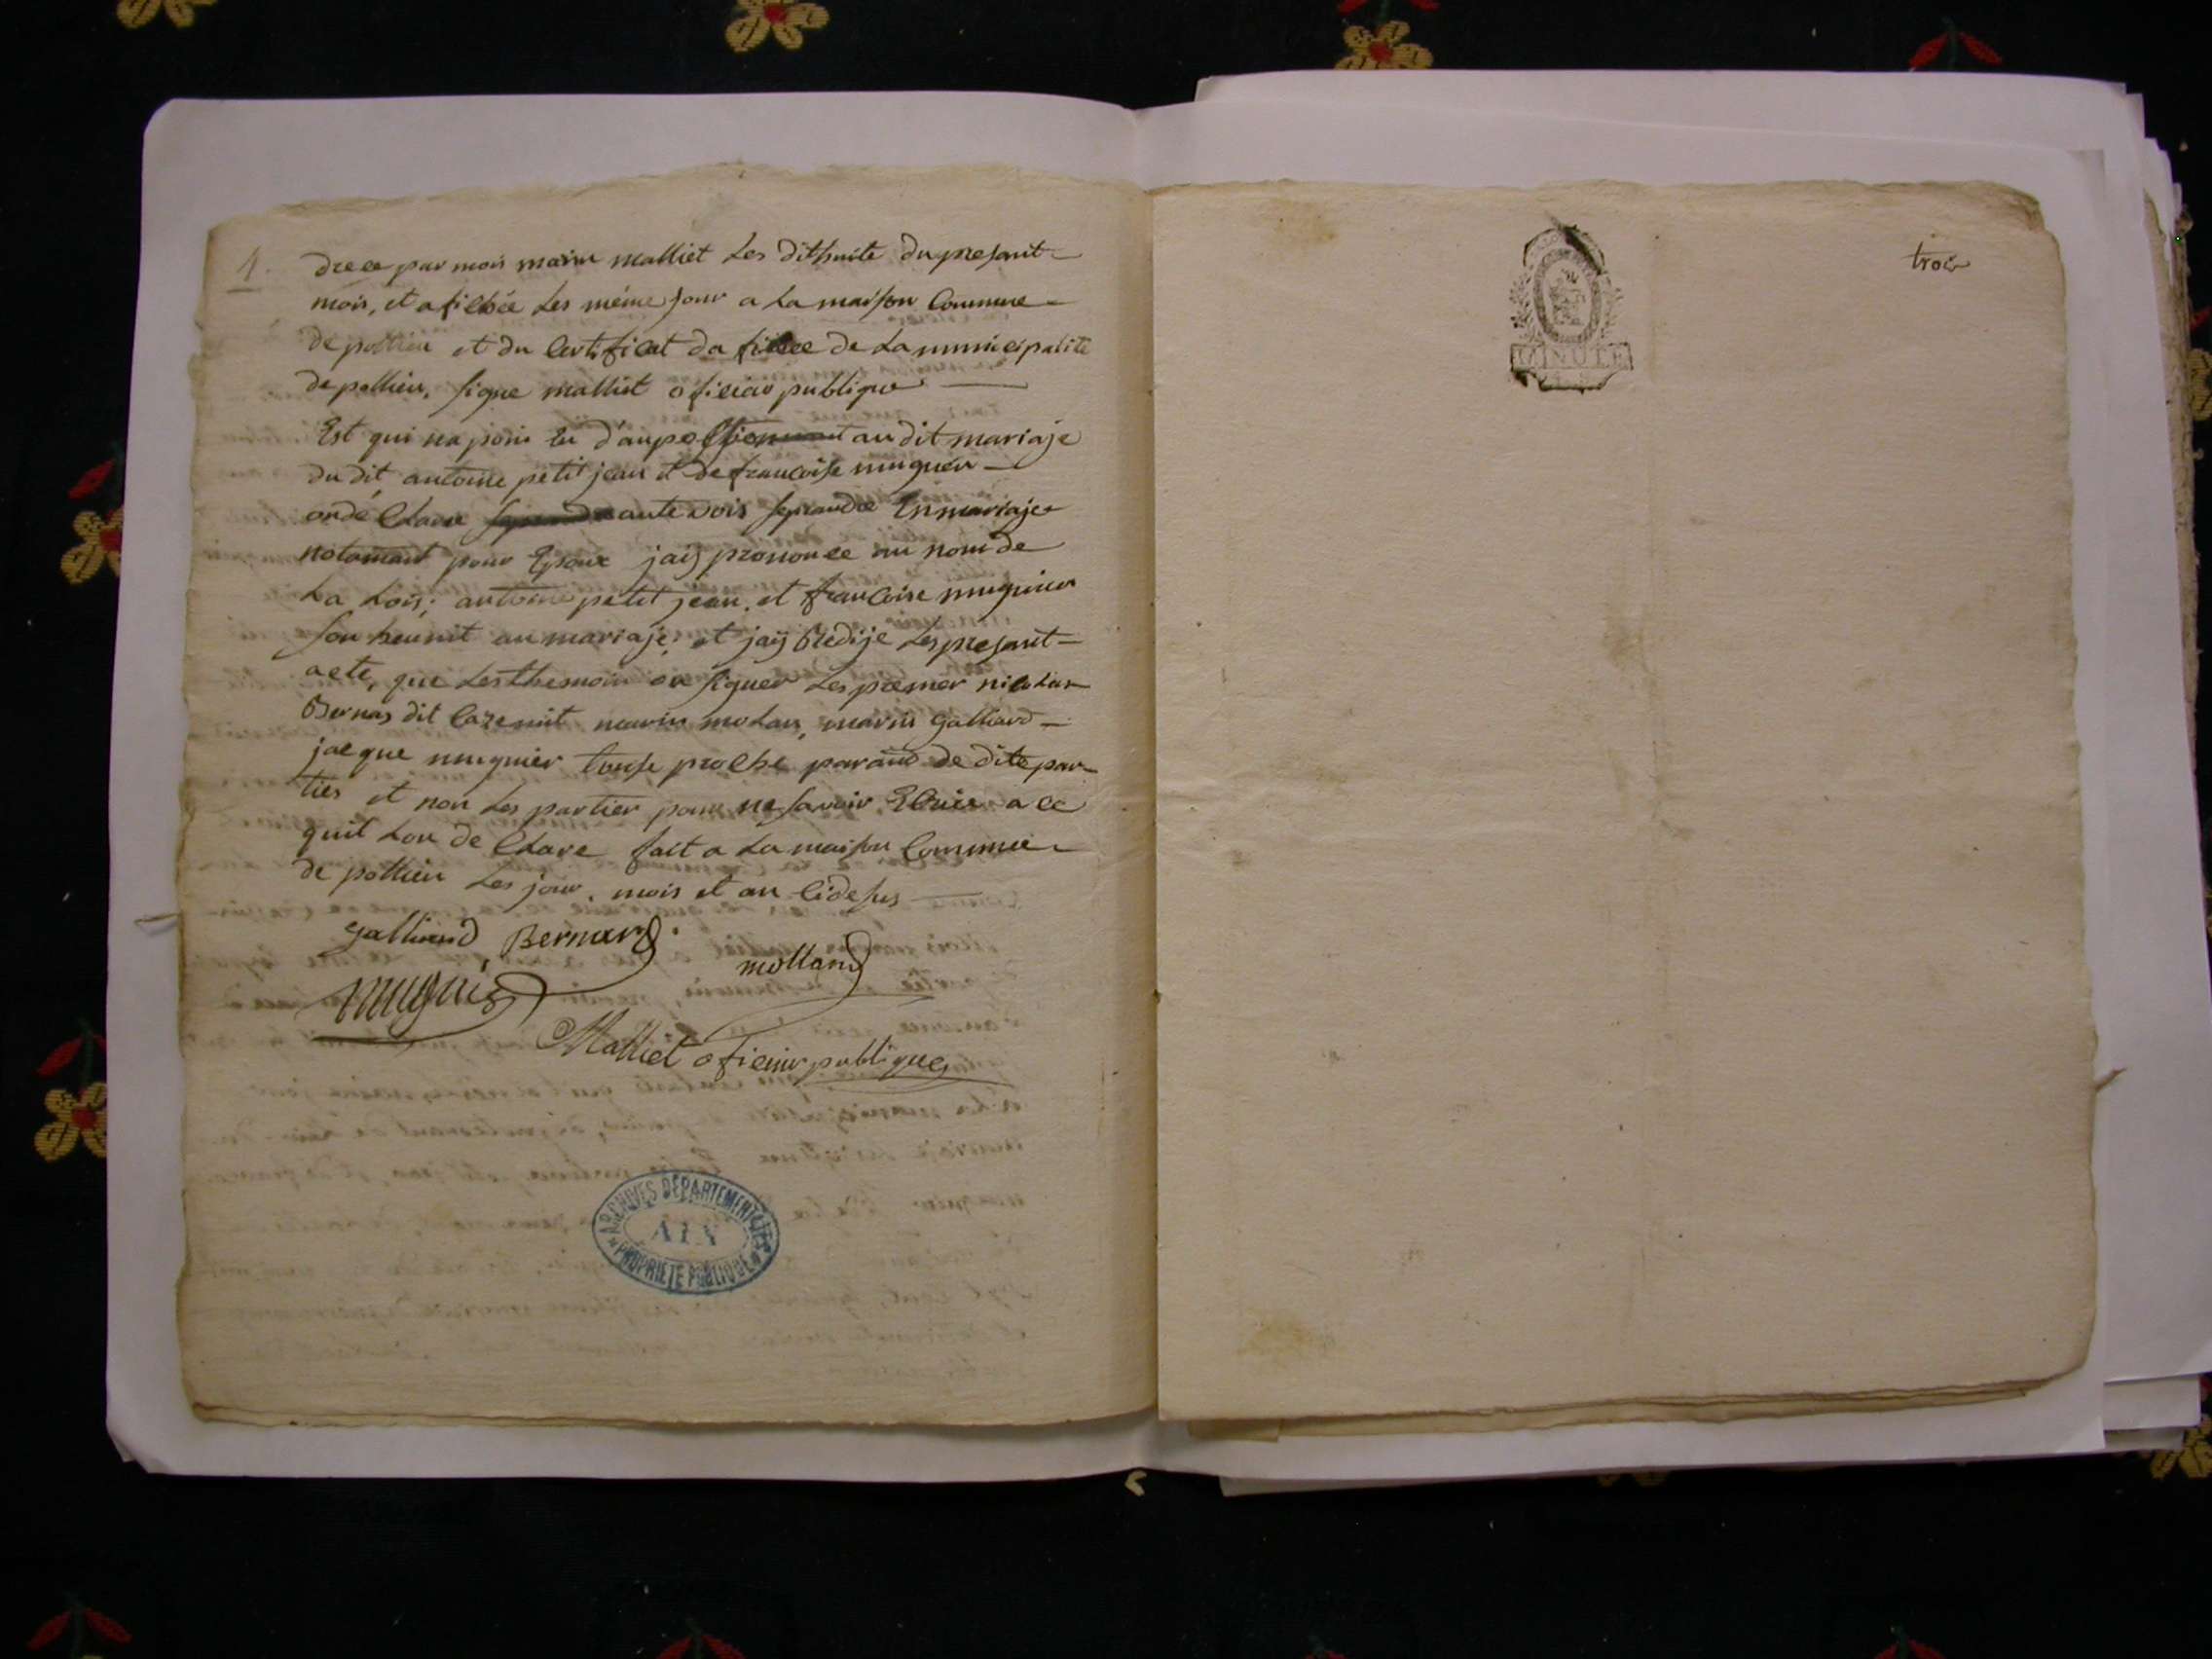 4.
dreee par mois marin malliet Les dithuite du presant
mois, et afichée Les même jour a La maison Commune
de pollieu et du Certificat da fichee de La municipalité
de pollieu, signe malliet oficiar publique
Est qui na poin Eu d'aupossionnant au dit mariaje
du dit antoine petit jean et de francoise muguier
on dé Claree aute vois se prandre En mariaje
notamant pour Epoux jaij prononce au nom de
La Lois; antoine petit jean, et francoise muguier
son heunit au mariaje, et jaij Redije Les presant
acte, que Les themoin on signer Les premer nicolas
Bernas dit marin molan, marin galliard
jacque muguier touse proche parand de dite par
ties et non Les partier pour ne savoir Ecrire a ce
quit Lon de Clare fait a La maison Commune
de pollieu Les jour, mois et an Cidesus
galliand Bernard
molland
mugnié
Malliet oficier publique
ARCHIVES DÉPARTEMENTALES
AIN
PROPRIÉTÉ PUBLIQUE
trois
MINUTE